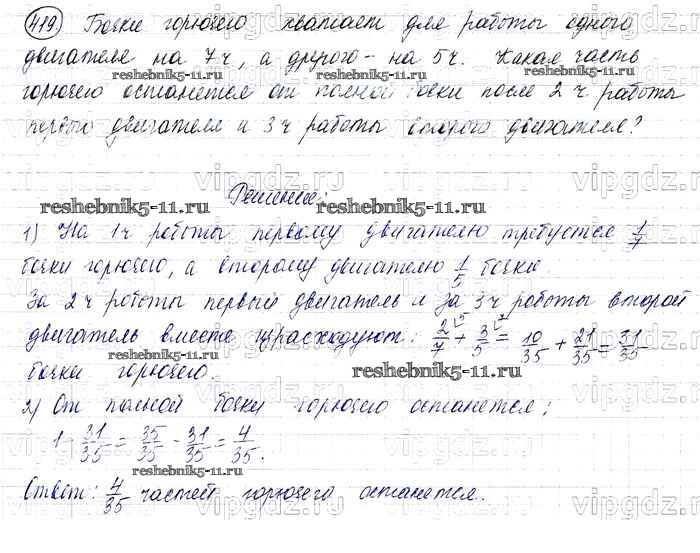 419) Бочки горючего хватает для работы одного
двигателя на 7 ч, а другого - на 5 ч. Какая часть
reshebnik5-11.ru reshebnik5-11.ru
горючего останется от полной бочки после 2 ч работы
первого двигателя и 3 ч работы второго двигателя?
vipgdz.ru vipgdz.ru vipgdz.ru
Решение:
reshebnik5-11.ru reshebnik5-11.ru
1) На 1 ч работы первому двигателю требуется 1/7
бочки горючего, а второму двигателю 1/5 бочки.
vipgdz.ru vipgdz.ru vipgdz.ru
За 2 ч работы первый двигатель и за 3 ч работы второй
двигатель вместе израсходуют: 2/7 + 3/5 = 10/35 + 21/35 = 31/35
reshebnik5-11.ru reshebnik5-11.ru
бочки горючего.
2) От полной бочки горючего останется:
vipgdz.ru vipgdz.ru vipgdz.ru
1 - 31/35 = 35/35 - 31/35 = 4/35.
reshebnik5-11.ru
Ответ: 4/35 частей горючего останется.
vipgdz.ru vipgdz.ru vipgdz.ru